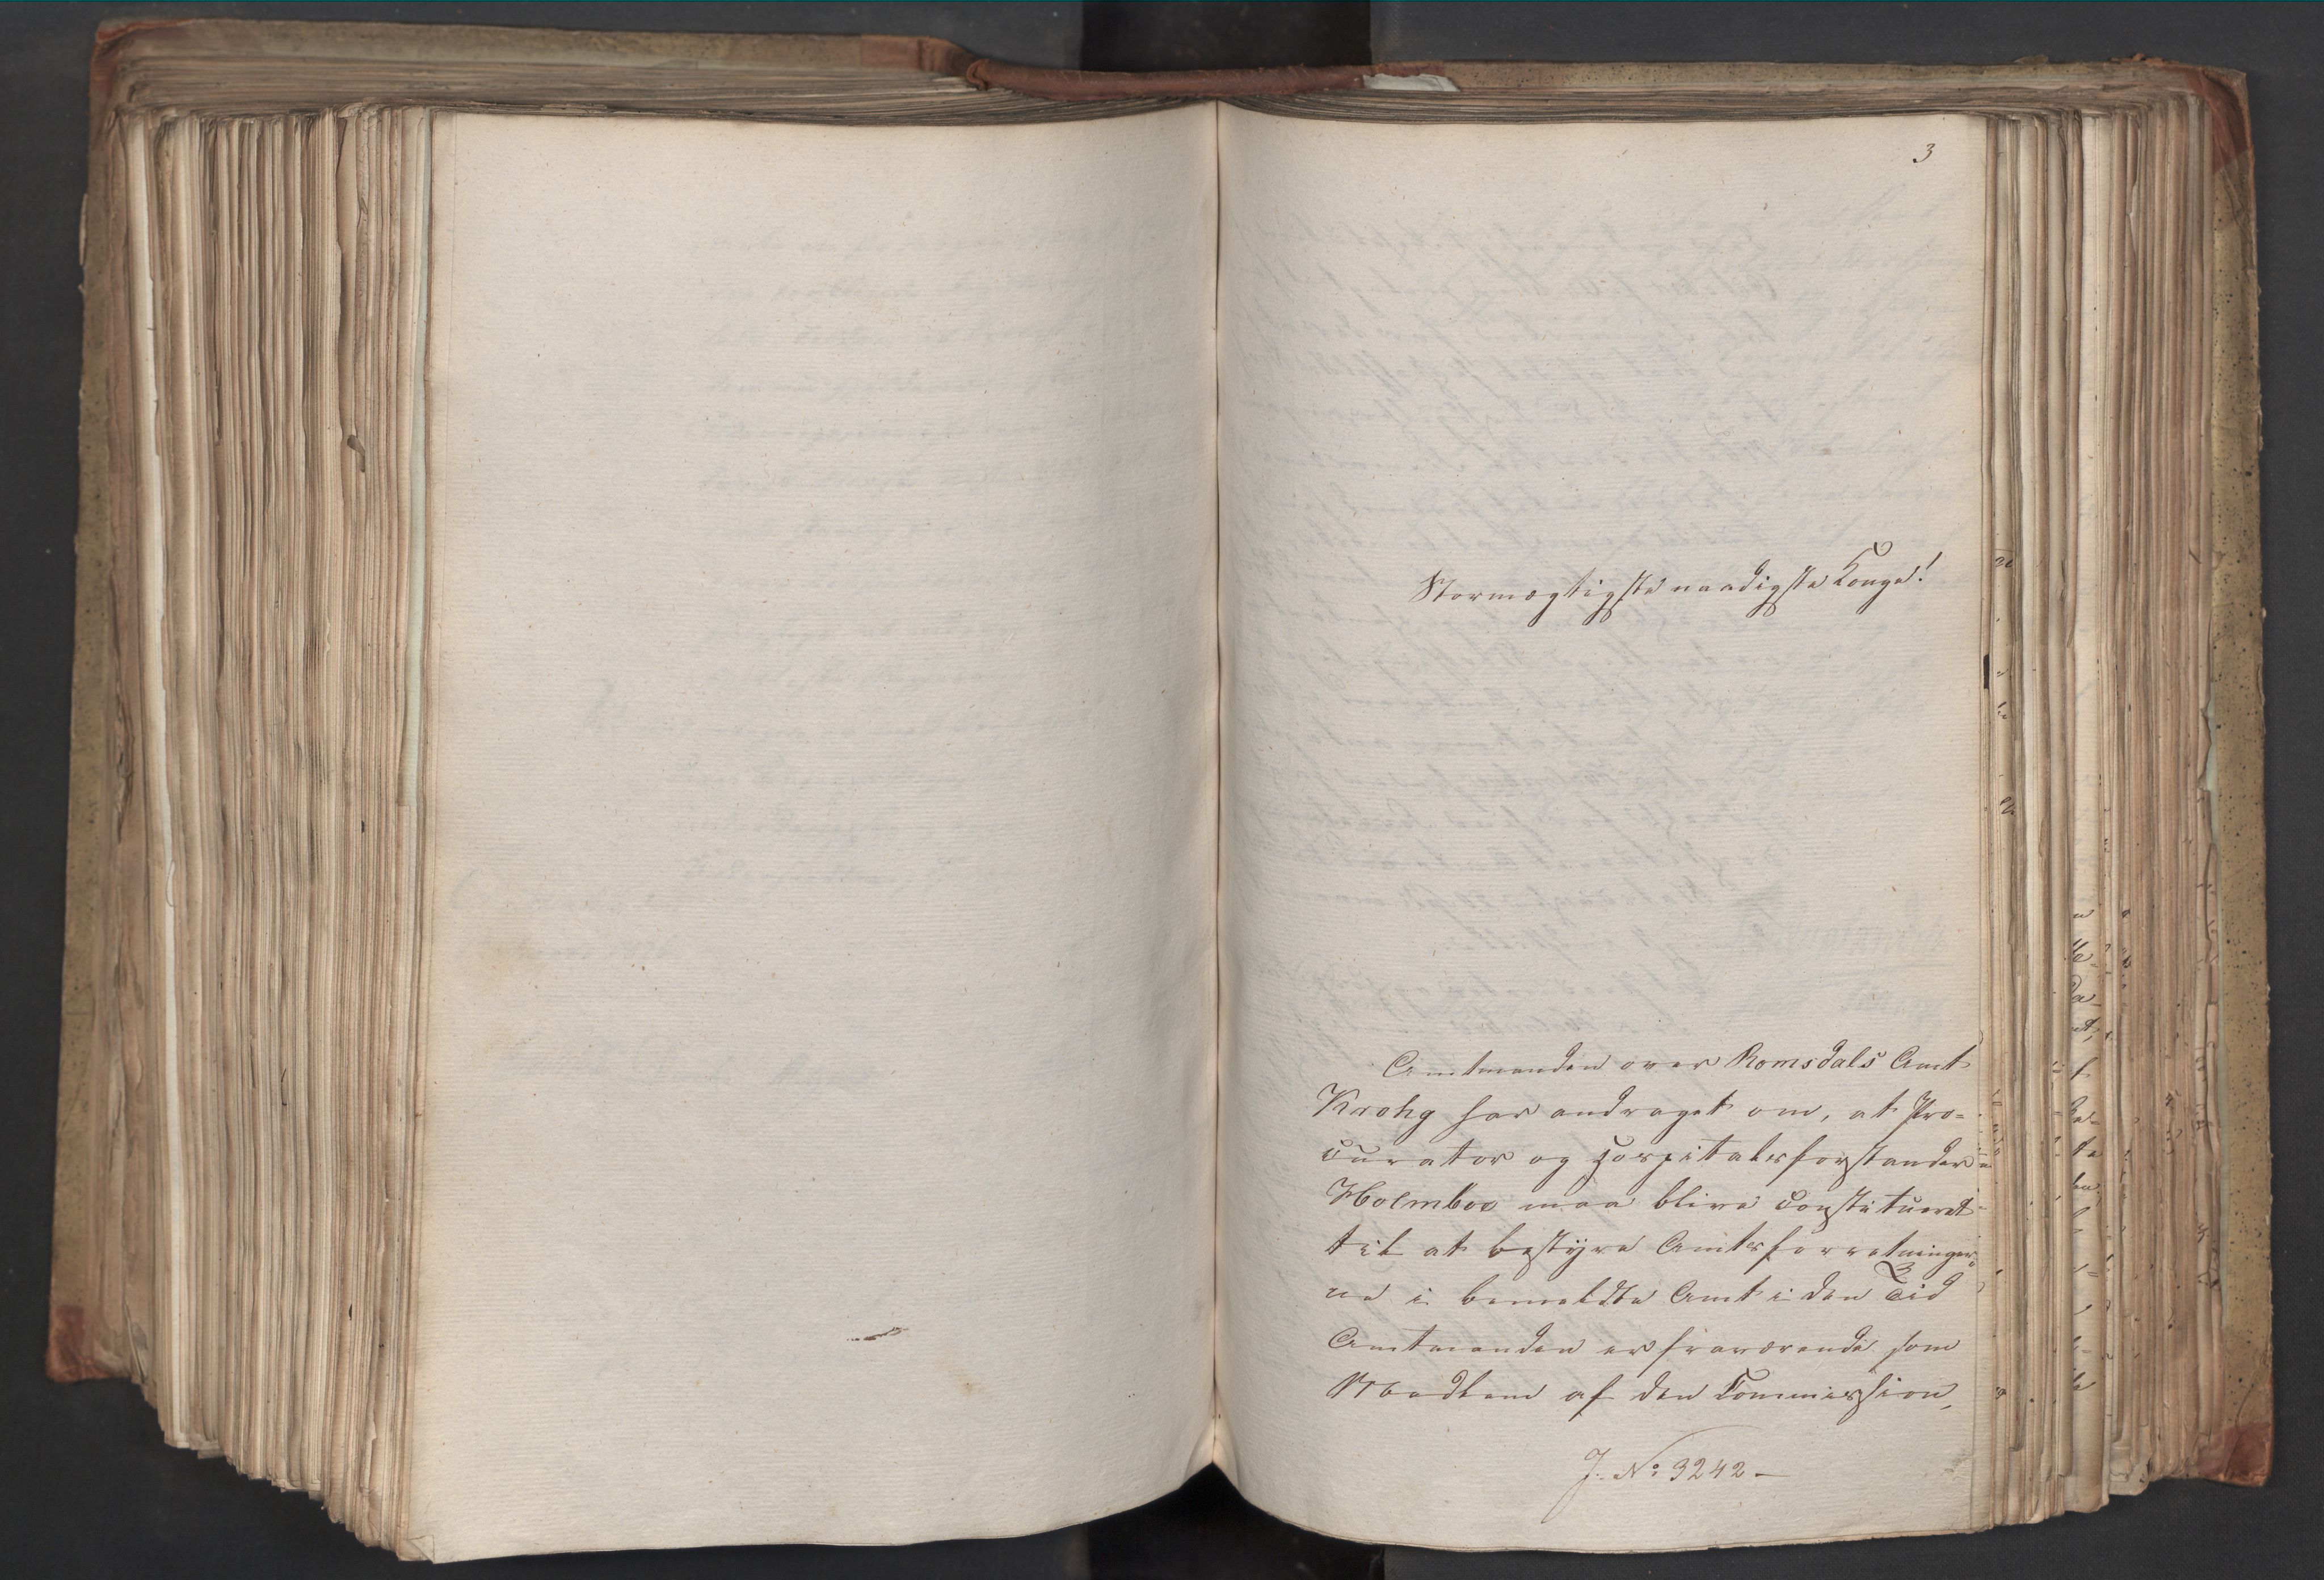 3
Stormægtigste naadigste Konge!
Amtmanden over Romsdals Amt
Krohg har andraget om, at Pro-
curator og Hospitalsforstander
Holmboe maa blive constitueret
til at bestyre Amtsforretninger-
ne i bemeldte Amt i den Tid
Amtmanden er fraværende som
Medlem af den Commission,
J. No 3242 —